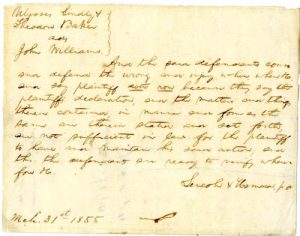 Ulysses Lindly &
Theodore Baker
ads
John Williams
And the said defendants come
and defend the wrong and injury when where &c
and say plaintiff actio non because they say the
plaintiffs declaration, and the matters and things
therein contained in manner and form as the
same are therein stated and set forth
are not sufficient in law for the plaintiff
to have and maintain his said action and
this the defendants are ready to verify, wherefore
&c
Lincoln & Herndon p.d.
Mch. 31st 1855